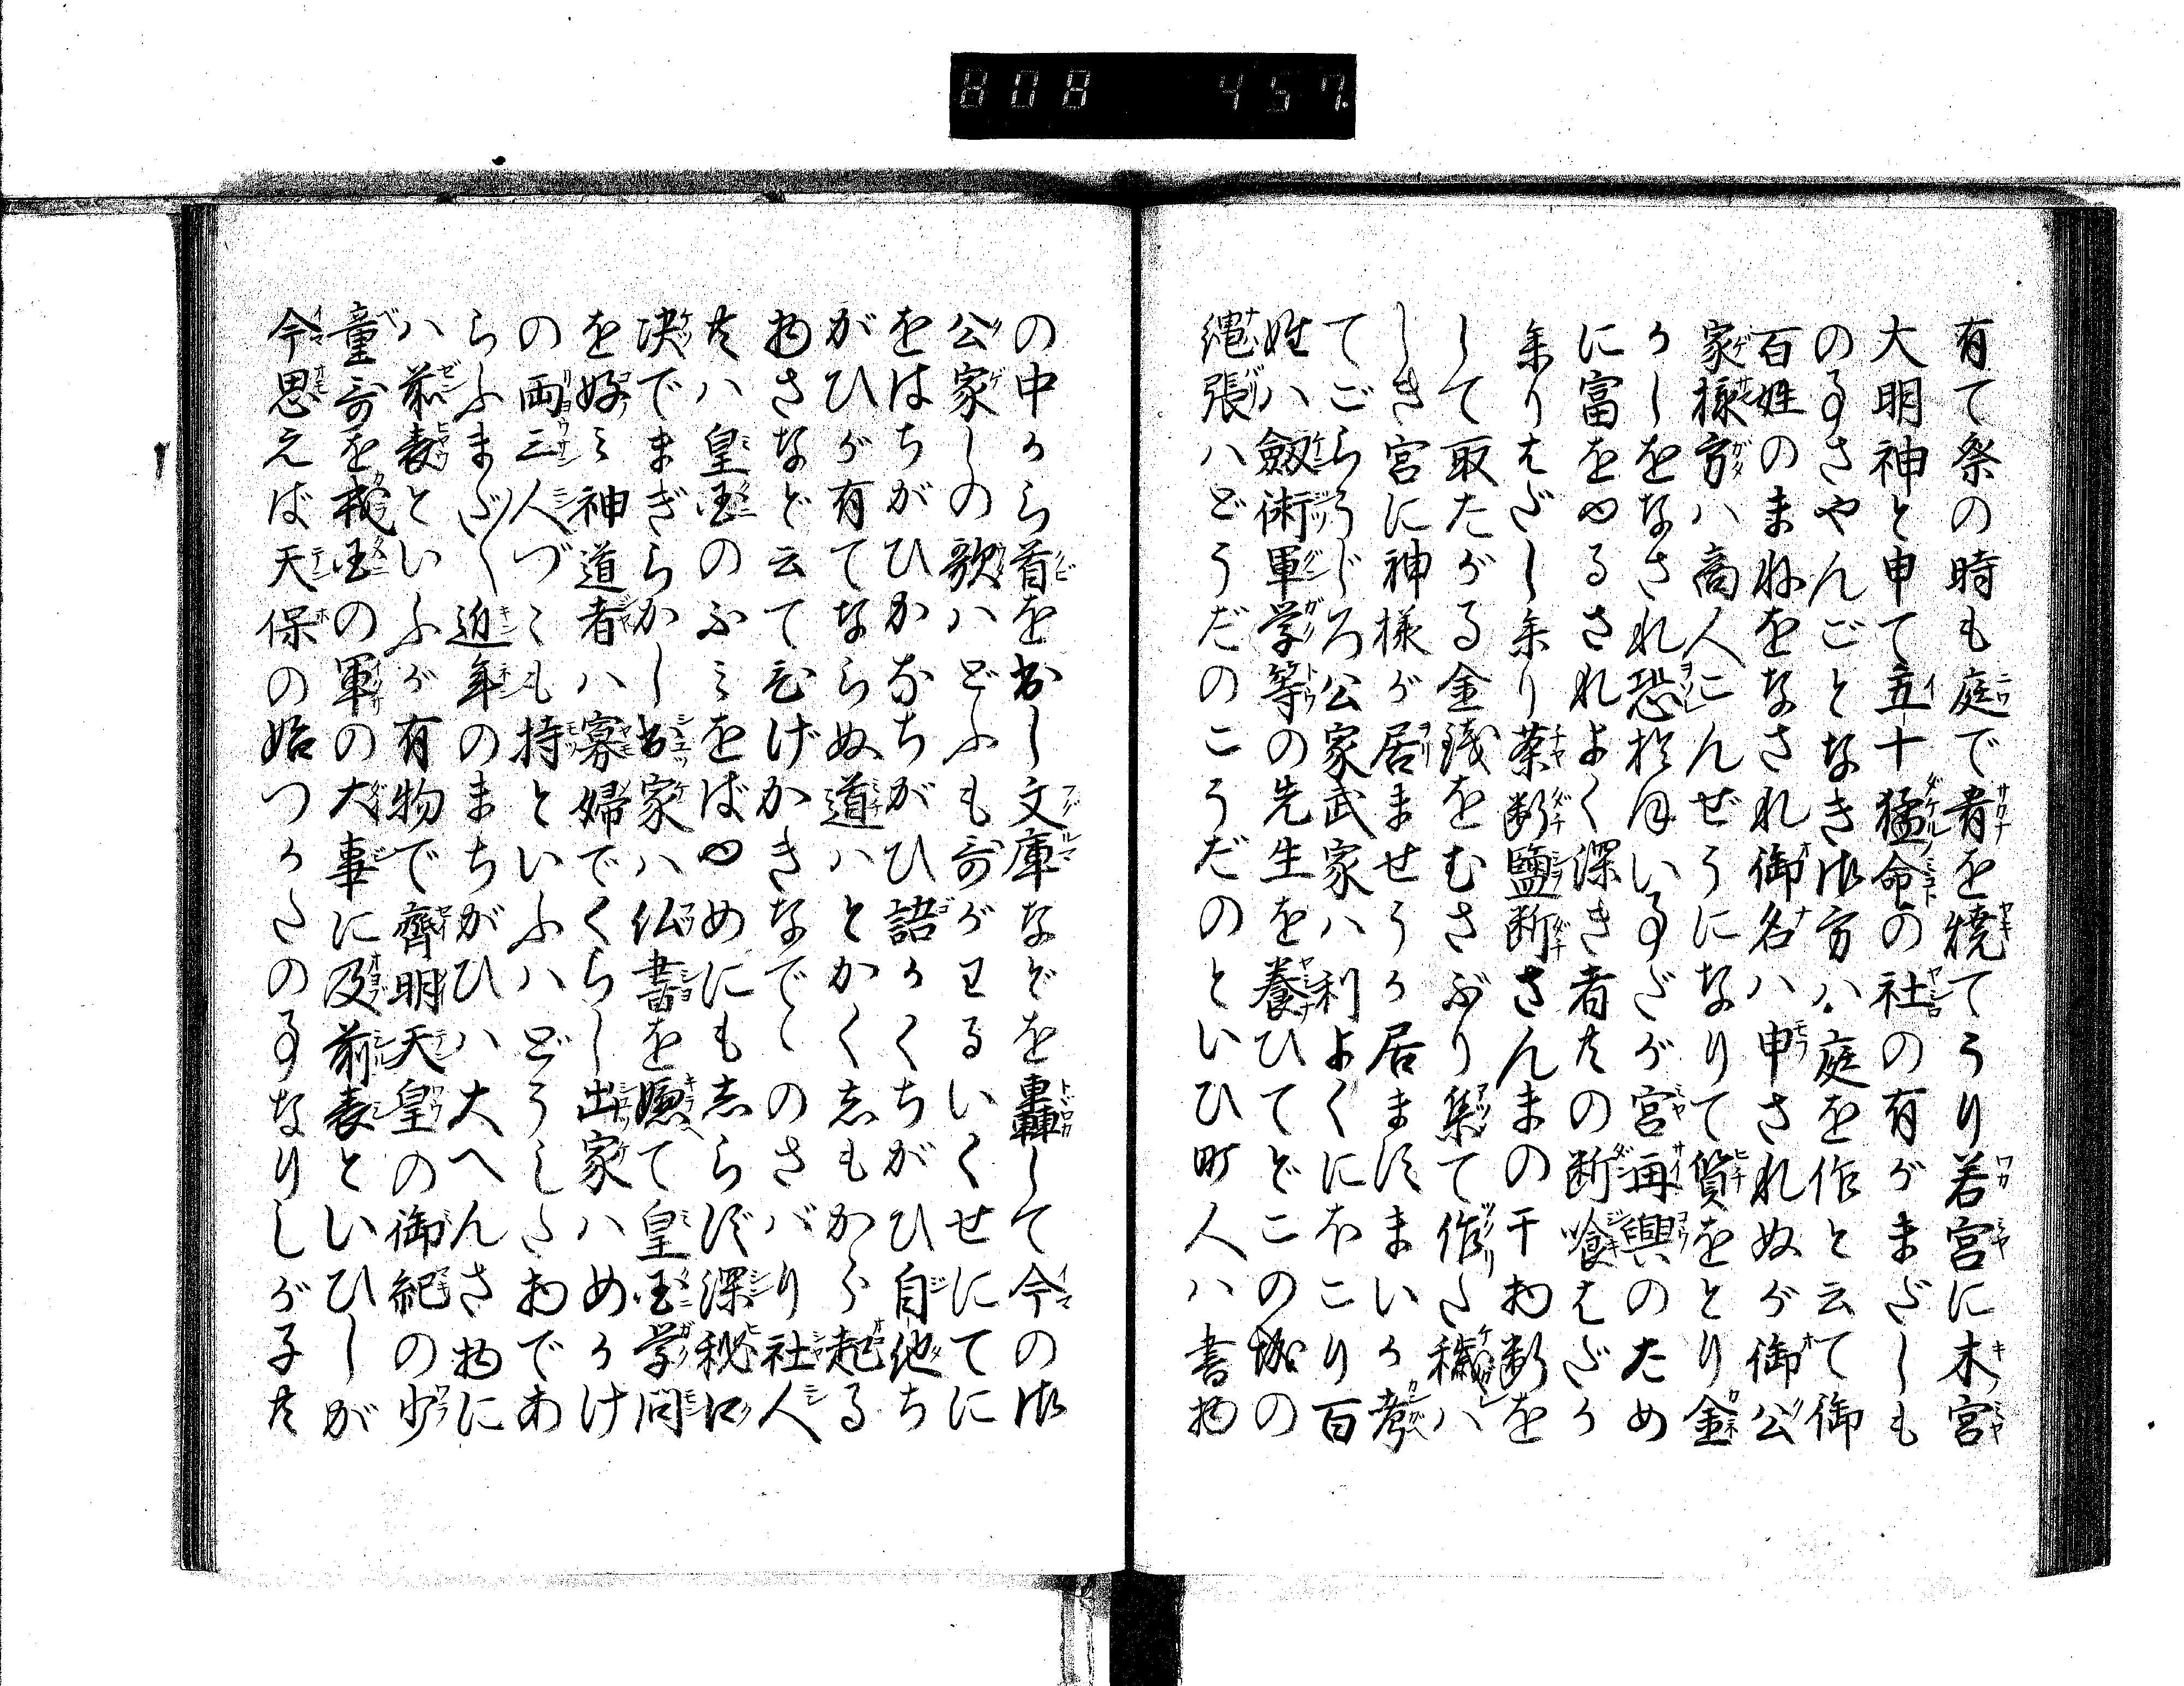 808 457.
有て祭の時も庭で肴を焼てうり若宮に木宮
大明神と申て五十猛命の社の有がまだしも
の事さやんごとなき御方ハ庭を作と云て御
百姓のまねをなされ御名ハ申されぬが御公
家様方ハ商人こんぜうになりて質をとり金
かしをなされ恐ほい事だが宮再興のため
に富をゆるされよく深き者共の断喰はだか
参りはだし参り茶断鹽断さんまの干物断を
して取たがる金銭をむさぶり集て作た穢ハ
しき宮に神様が居ませうか居ますまいか考
てごらうじろ公家武家ハ利よくにほこり百
姓ハ劔術軍学等の先生を養ひてどこの城の
縄張ハどうだのこうだのといひ町人ハ書物
の中から首を出し文庫などを轟して今の御
公家しの歌ハどふも哥がわるいくせにてに
をはちがひかなちがひ語かくちがひ自他ち
がひが有てならぬ道ハとかく志もから起る
物さなど云てひげかきなでゝのさバり社人
共ハ皇国のふミをばゆめにも志らず深秘口
决でまぎらかし出家ハ仏書を嫌て皇国学問
を好ミ神道者ハ寡婦でくらし出家ハめかけ
の両三人づゝも持といふハどうした物であ
らふまだ〳〵近年のまちがひハ大へんさ物に
ハ前表といふが有物で齊明天皇の御紀の少
童哥を我国の軍の大事に及前表といひしが
今思えば天保の始つかたの事なりしが子共